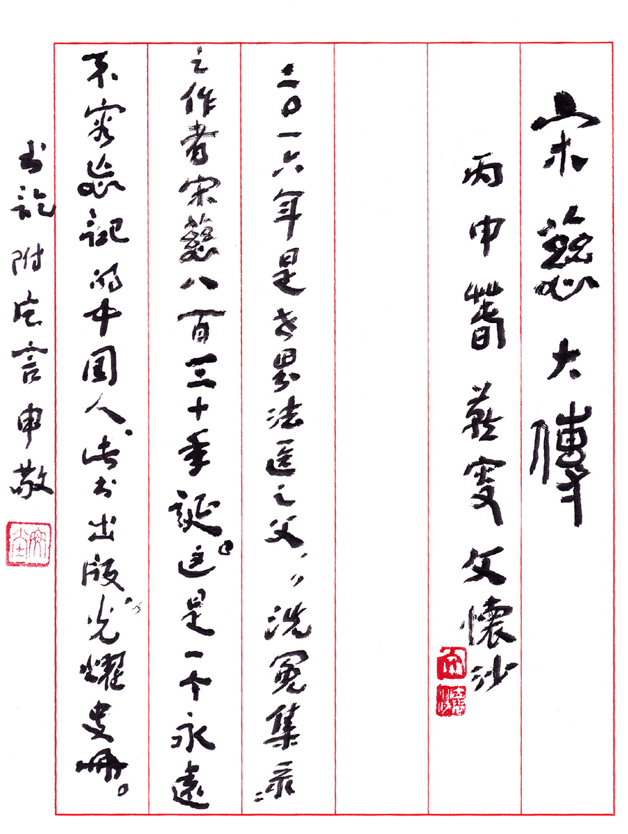 宋慈大傳
丙申萅 燕叟文懷沙
二〇一六年是世界法医之父，〃洗冤集录〃
之作者宋慈八百三十年誕。这是一个永遠
不容忘記的中国人、此书出版，光耀史册。
书訖附言申敬